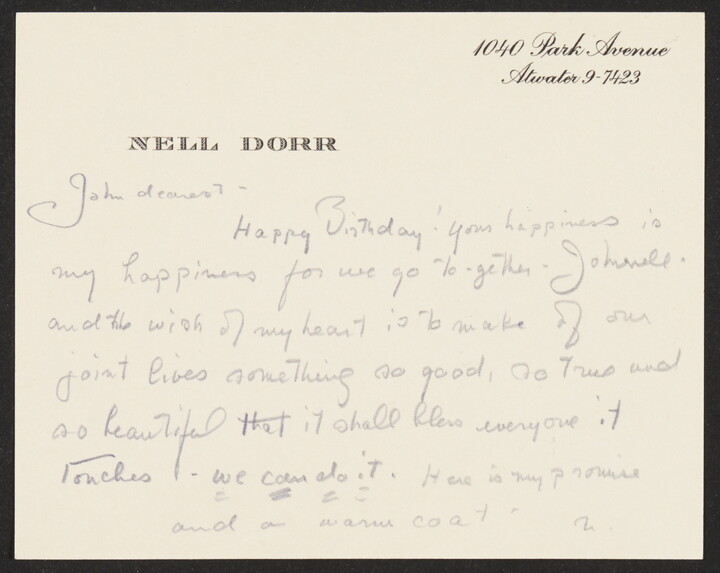 1040 Park Avenue
Atwater 9-7423
NELL DORR
John dearest -
Happy Birthday! your happiness is
my happiness for we go to-gether - Johnnell -
and the wish of my heart is to make of our
joint lives something so good, so true and
so beautiful that it shall bless everyone it
touches - we can do it. Here is my promise
and a warm coat - n.